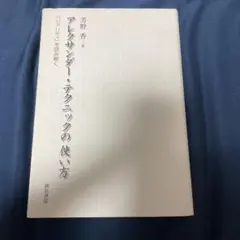 芳野 香 著
アレクサンダー・テクニックの使い方
誠信書房